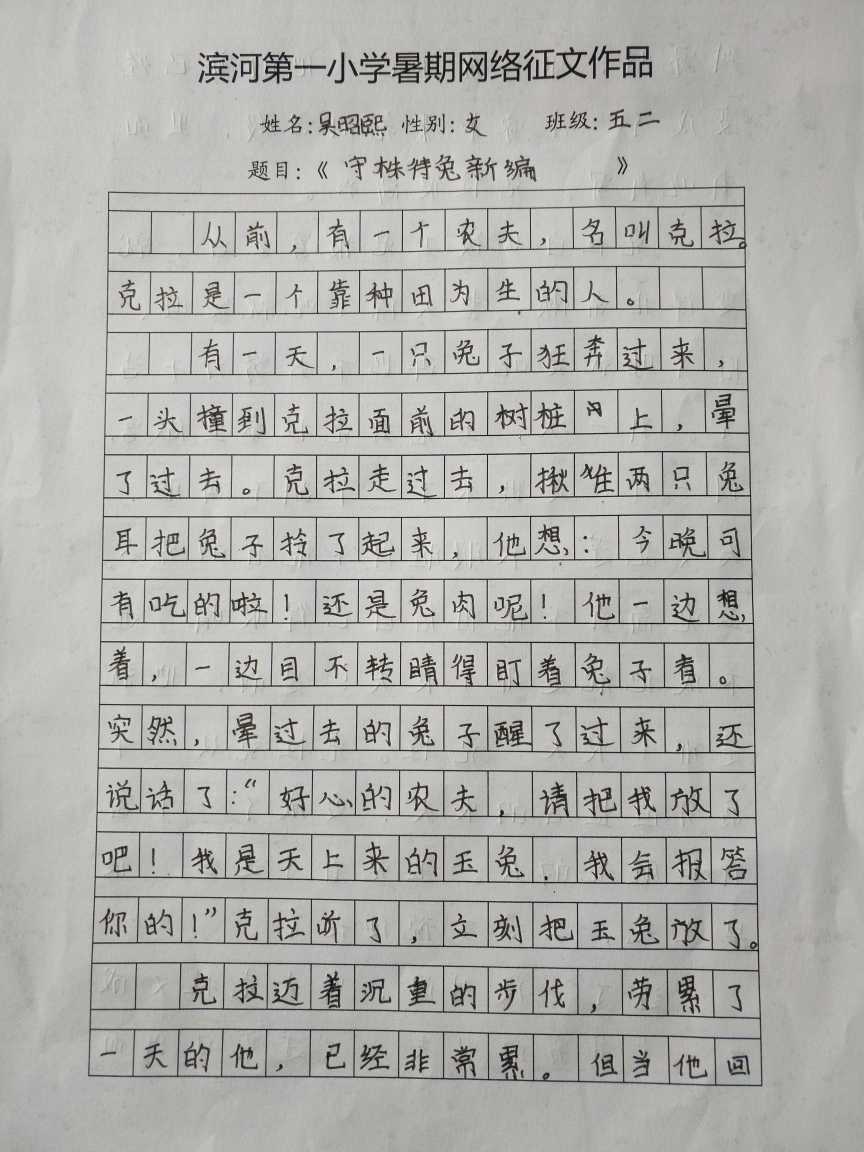 滨河第一小学暑期网络征文作品
姓名：吴昭熙 性别：女 班级：五二
题目：《 守株待兔新编 》
从前，有一个农夫，名叫克拉。
克拉是一个靠种田为生的人。
有一天，一只兔子狂奔过来，
一头撞到克拉面前的树桩上，晕
了过去。克拉走过去，揪住两只兔
耳把兔子拎了起来，他想：今晚可
有吃的啦！还是兔肉呢！他一边想
着，一边目不转睛得盯着兔子看。
突然，晕过去的兔子醒了过来，还
说话了：“好心的农夫，请把我放了
吧！我是天上来的玉兔．我会报答
你的！”克拉听了，立刻把玉兔放了。
克拉迈着沉重的步伐，劳累了
一天的他，已经非常累。但当他回